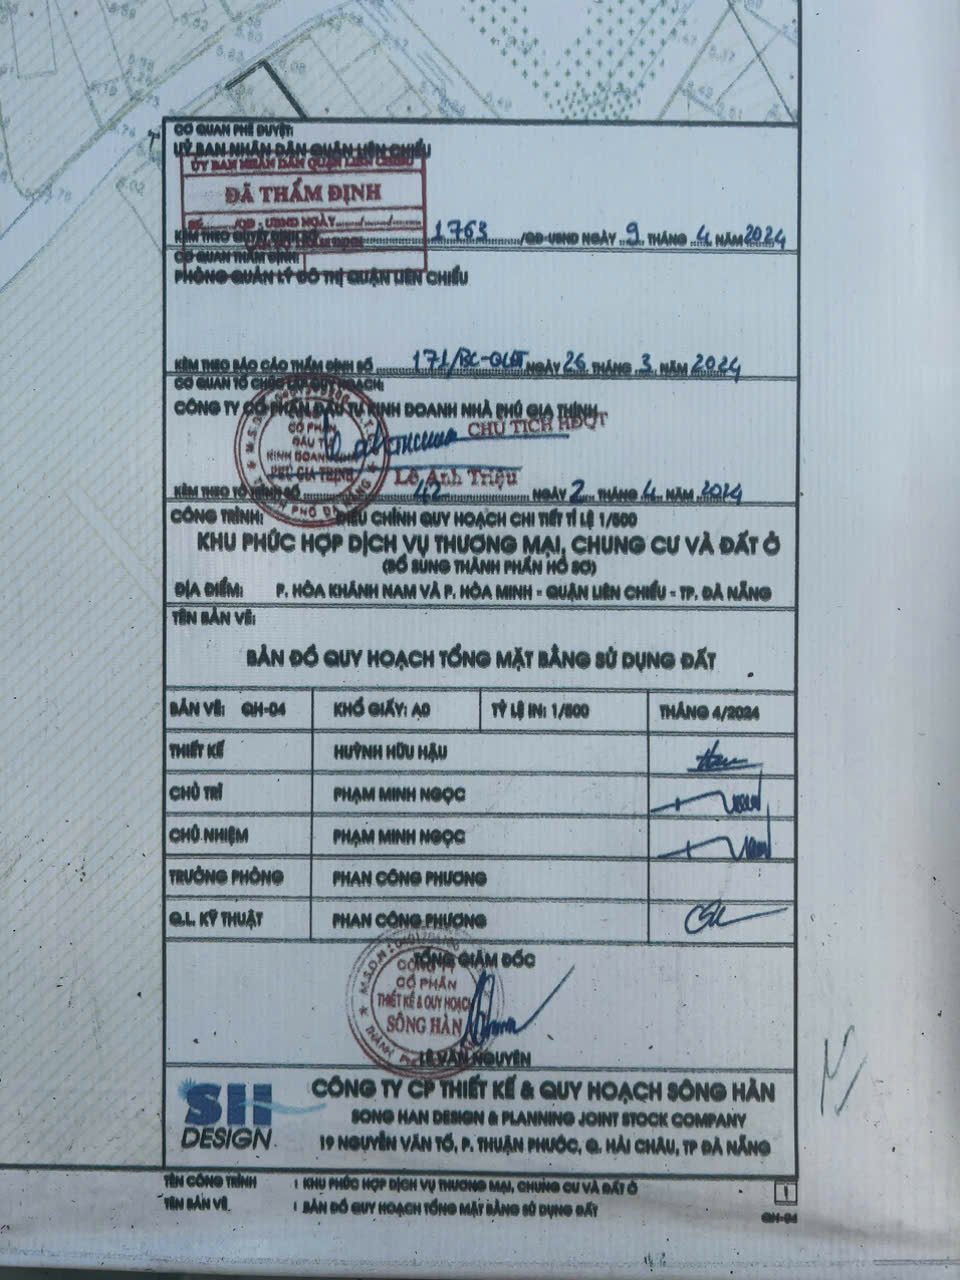 CƠ QUAN PHÊ DUYỆT:
UỶ BAN NHÂN DÂN QUẬN LIÊN CHIỂU
ỦY BAN NHÂN DÂN QUẬN LIÊN CHIỂU
ĐÃ THẨM ĐỊNH
/QĐ - UBND NGÀY
KÈM THEO QUYẾT ĐỊNH SỐ 1763 /QĐ-UBND NGÀY 9 THÁNG 4 NĂM 2024
CƠ QUAN THẨM ĐỊNH:
PHÒNG QUẢN LÝ ĐÔ THỊ QUẬN LIÊN CHIỂU
KÈM THEO BÁO CÁO THẨM ĐỊNH SỐ 171/BC-QLĐT NGÀY 26 THÁNG 3 NĂM 2024
CƠ QUAN TỔ CHỨC LẬP QUY HOẠCH:
CÔNG TY CỔ PHẦN ĐẦU TƯ KINH DOANH NHÀ PHÚ GIA THỊNH
CHỦ TỊCH HĐQT
CỔ PHẦN
ĐẦU TƯ
KINH DOANH
PHÚ GIA THỊNH
THÀNH PHỐ ĐÀ NẴNG
Lê Anh Triệu
KÈM THEO TỜ TRÌNH SỐ 42 NGÀY 2 THÁNG 4 NĂM 2024
CÔNG TRÌNH: ĐIỀU CHỈNH QUY HOẠCH CHI TIẾT TỈ LỆ 1/500
KHU PHỨC HỢP DỊCH VỤ THƯƠNG MẠI, CHUNG CƯ VÀ ĐẤT Ở
(BỔ SUNG THÀNH PHẦN HỒ SƠ)
ĐỊA ĐIỂM: P. HÒA KHÁNH NAM VÀ P. HÒA MINH - QUẬN LIÊN CHIỂU - TP. ĐÀ NẴNG
TÊN BẢN VẼ:
BẢN ĐỒ QUY HOẠCH TỔNG MẶT BẰNG SỬ DỤNG ĐẤT
BẢN VẼ: QH-04 KHỔ GIẤY: A0 TỶ LỆ IN: 1/500 THÁNG 4/2024
THIẾT KẾ HUỲNH HỮU HẬU
CHỦ TRÌ PHẠM MINH NGỌC
CHỦ NHIỆM PHẠM MINH NGỌC
TRƯỞNG PHÒNG PHAN CÔNG PHƯƠNG
Q.L. KỸ THUẬT PHAN CÔNG PHƯƠNG
TỔNG GIÁM ĐỐC
CÔNG TY
CỔ PHẦN
THIẾT KẾ & QUY HOẠCH
SÔNG HÀN
LÊ VĂN NGUYÊN
SH DESIGN
CÔNG TY CP THIẾT KẾ & QUY HOẠCH SÔNG HÀN
SONG HAN DESIGN & PLANNING JOINT STOCK COMPANY
19 NGUYỄN VĂN TỐ, P. THUẬN PHƯỚC, Q. HẢI CHÂU, TP ĐÀ NẴNG
TÊN CÔNG TRÌNH : KHU PHỨC HỢP DỊCH VỤ THƯƠNG MẠI, CHUNG CƯ VÀ ĐẤT Ở
TÊN BẢN VẼ : BẢN ĐỒ QUY HOẠCH TỔNG MẶT BẰNG SỬ DỤNG ĐẤT
1
QH-04